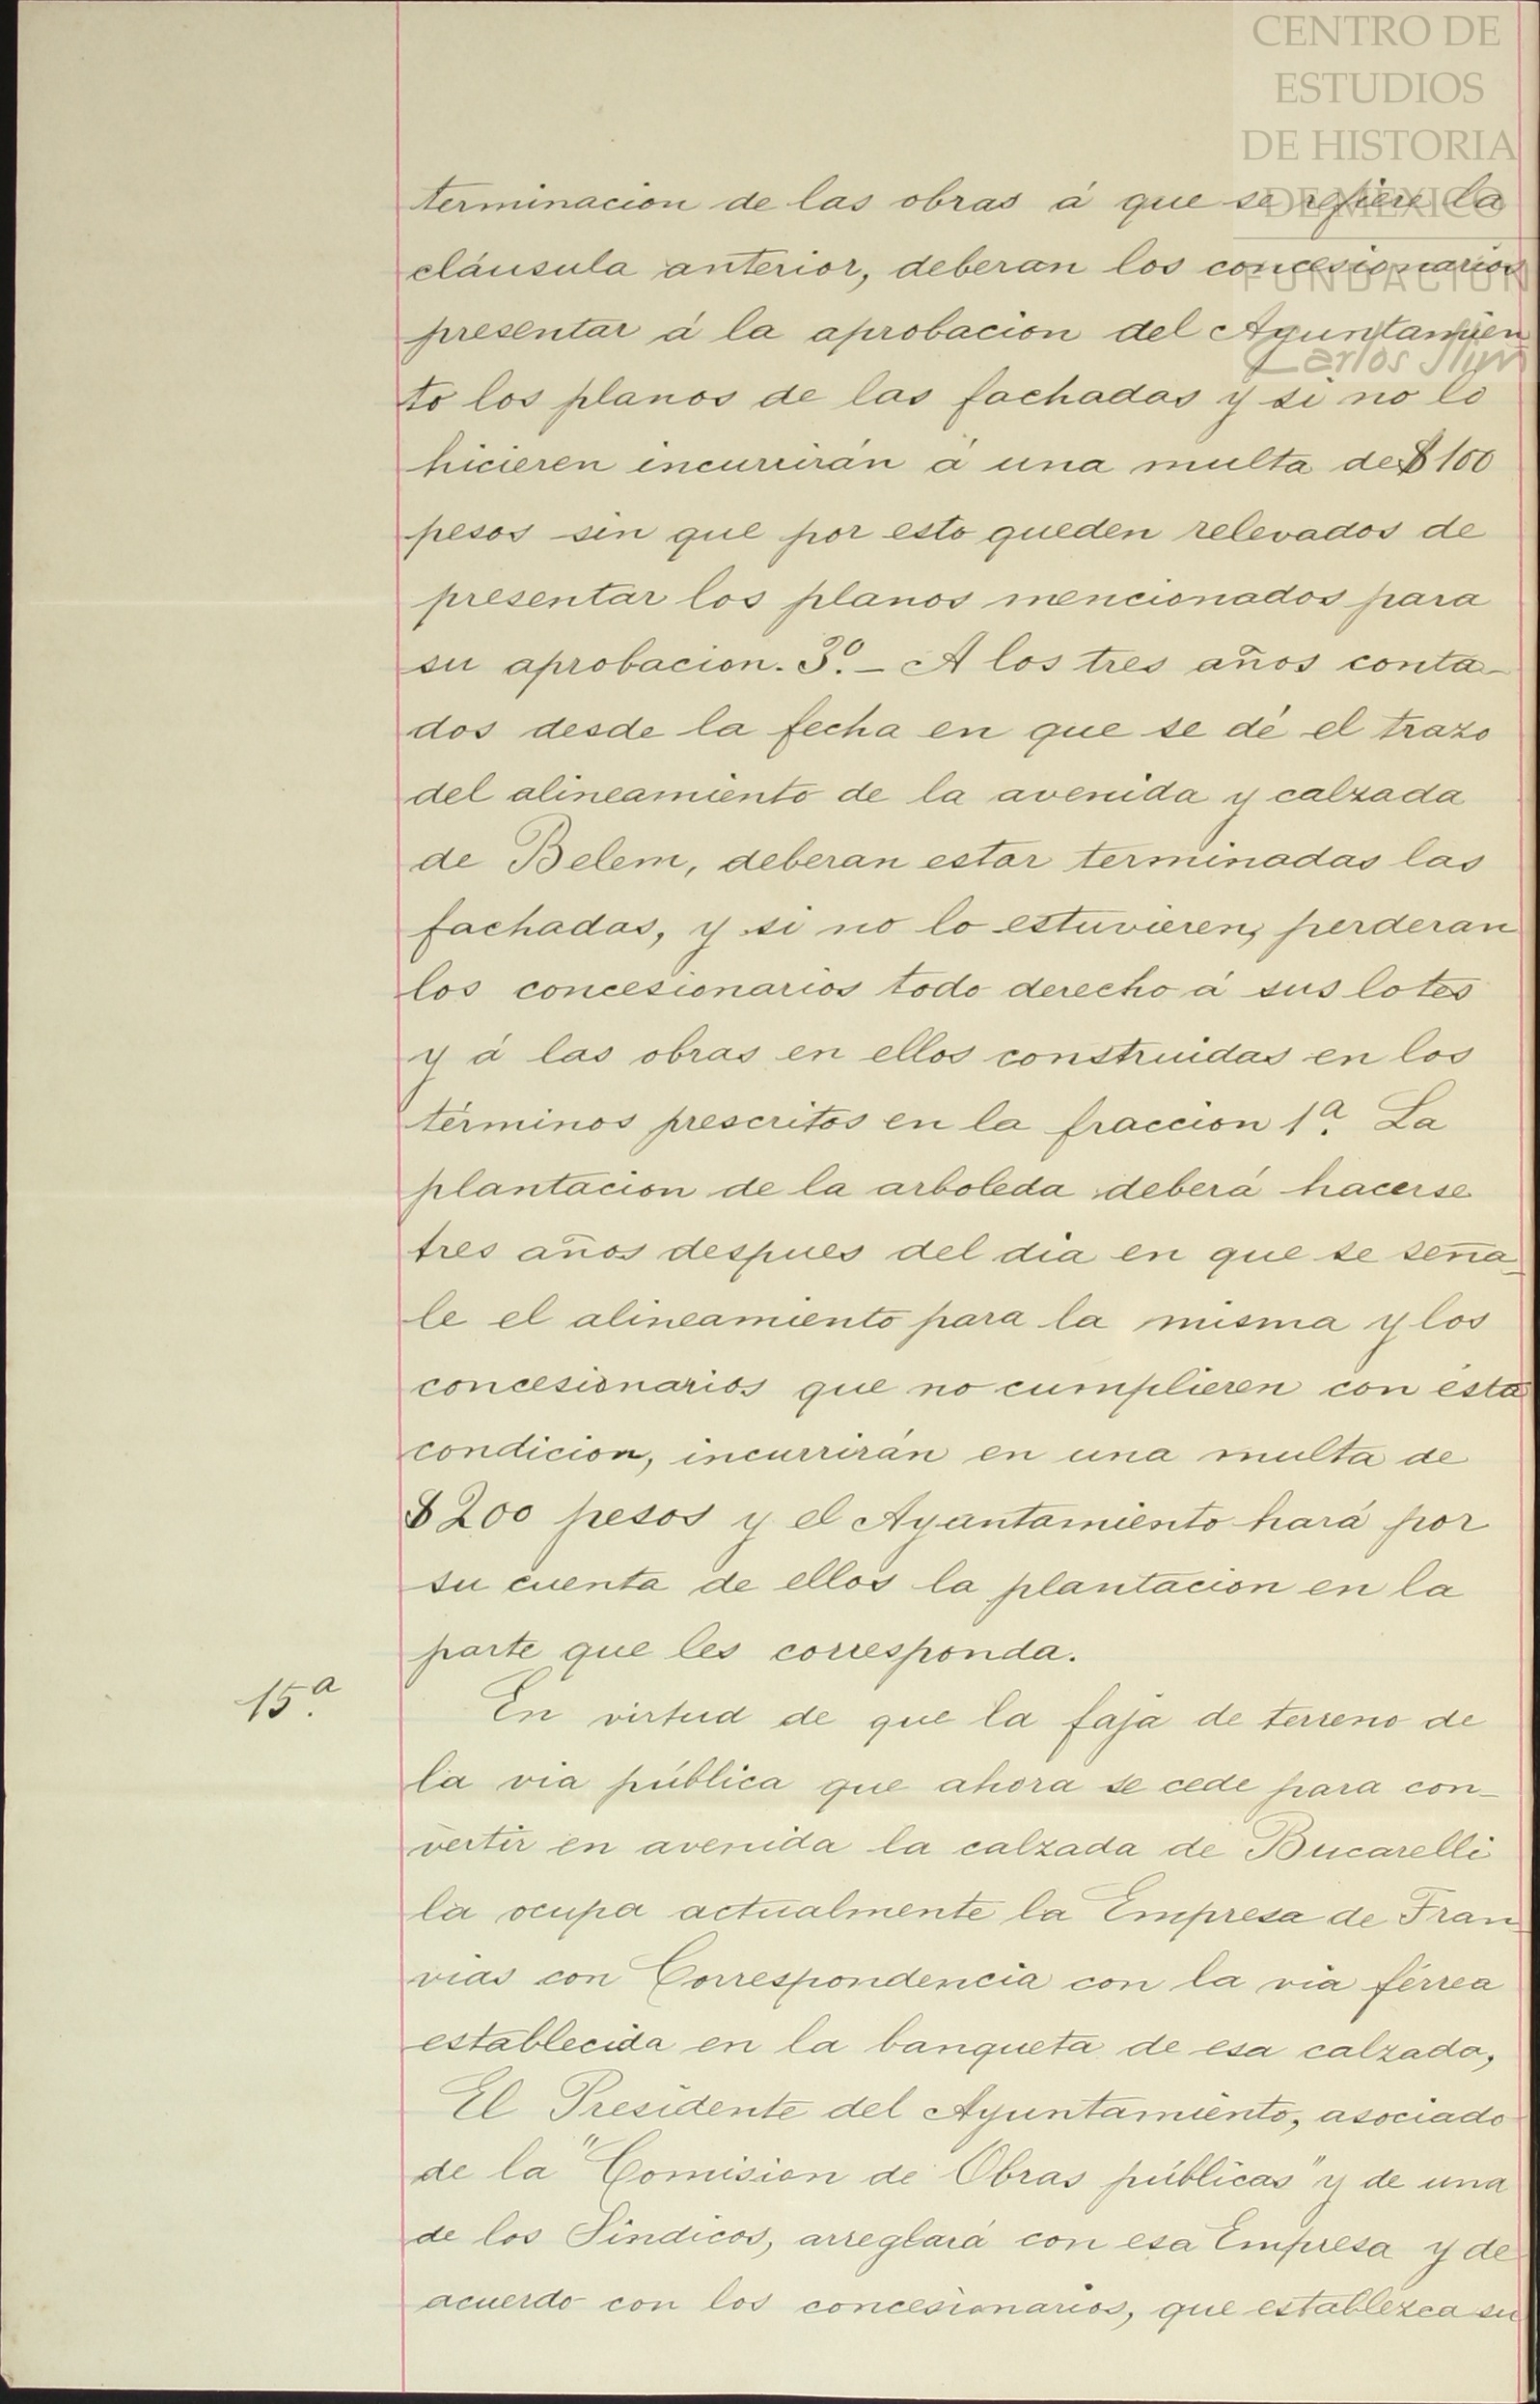 CENTRO DE
ESTUDIOS
DE HISTORIA
DE MEXICO
FUNDACION
Carlos Slim
terminacion de las obras á que se refiere la
cláusula anterior, deberan los concesionarios
presentar á la aprobacion del Ayuntamien
to los planos de las fachadas y si no lo
hicieren incurrirán á una multa de $100
pesos sin que por esto queden relevados de
presentar los planos mencionados para
su aprobacion. 3º.- A los tres años conta-
dos desde la fecha en que se dé el trazo
del alineamiento de la avenida y calzada
de Belem, deberan estar terminadas las
fachadas, y si no lo estuvieren, perderan
los concesionarios todo derecho á sus lotes
y á las obras en ellos construidas en los
términos prescritos en la fraccion 1ª. La
plantacion de la arboleda deberá hacerse
tres años despues del dia en que se seña-
le el alineamiento para la misma y los
concesionarios que no cumplieren con ésta
condicion, incurrirán en una multa de
$200 pesos y el Ayuntamiento hará por
su cuenta de ellos la plantacion en la
parte que les corresponda.
15ª.
En virtud de que la faja de terreno de
la via pública que ahora se cede para con-
vertir en avenida la calzada de Bucarelli
la ocupa actualmente la Empresa de Tran-
vias con Correspondencia con la via férrea
establecida en la banqueta de esa calzada,
El Presidente del Ayuntamiento, asociado
de la "Comision de Obras públicas" y de una
de los Síndicos, arreglará con esa Empresa y de
acuerdo con los concesionarios, que establezca su